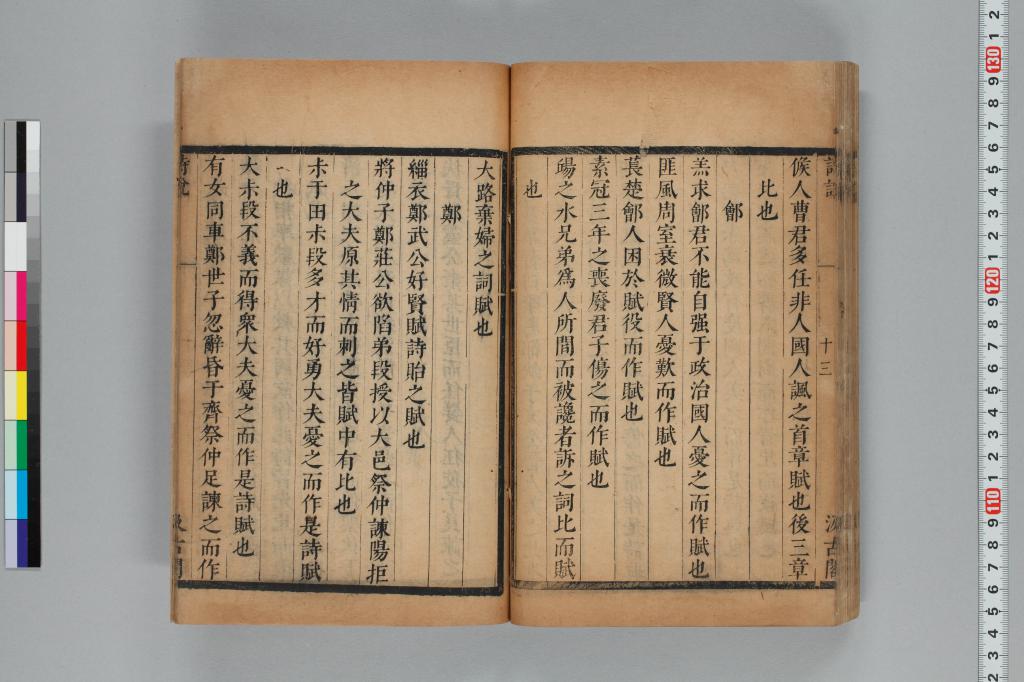 候人曹君多任非人國人諷之首章賦也後三章
比也
鄶
羔求鄶君不能自强于政治國人憂之而作賦也
匪風周室衰微賢人憂歎而作賦也
萇楚鄶人困於賦役而作賦也
素冠三年之喪廢君子傷之而作賦也
昜之水兄弟為人所間而被讒者訴之詞比而賦
也
十三
大路棄婦之詞賦也
鄭
緇衣鄭武公好賢賦詩貽之賦也
將仲子鄭莊公欲陷弟段授以大邑祭仲諫陽拒
之大夫原其情而刺之皆賦中有比也
尗于田尗段多才而好勇大夫憂之而作是詩賦
也
大尗段不義而得衆大夫憂之而作是詩賦也
有女同車鄭世子忽辭昏于齊祭仲足諫之而作